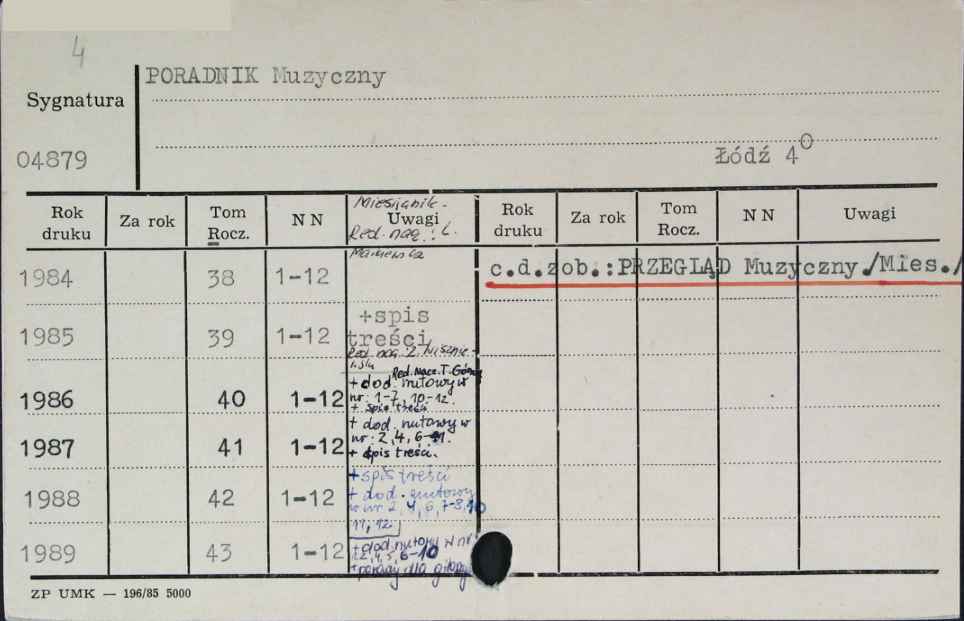 4
PORADNIK Muzyczny
Sygnatura
04879
Łódź 4⁰
Rok druku
Za rok
Tom Rocz.
N N
Miesięcznik.
Uwagi
Red. nacz.: L.
Rok druku
Za rok
Tom Rocz.
N N
Uwagi
1984 38 1-12
c.d.zob.:PRZEGLĄD Muzyczny./Mies./
1985 39 1-12 +spis
treści
Red. nacz. Z.
Red. Nacz. T.
1986 40 1-12 + dod. nutowy w
nr. 1-7, 10-12.
+ spis treści
1987 41 1-12 + dod. nutowy w
nr. 2, 4, 6-11.
+ spis treści.
1988 42 1-12 +spis treści
+ dod. nutowy
w nr 2, 4, 6, 7-8, 10
11, 12
1989 43 1-12 +dod nutowy w nr
6-10
ZP UMK — 196/85 5000